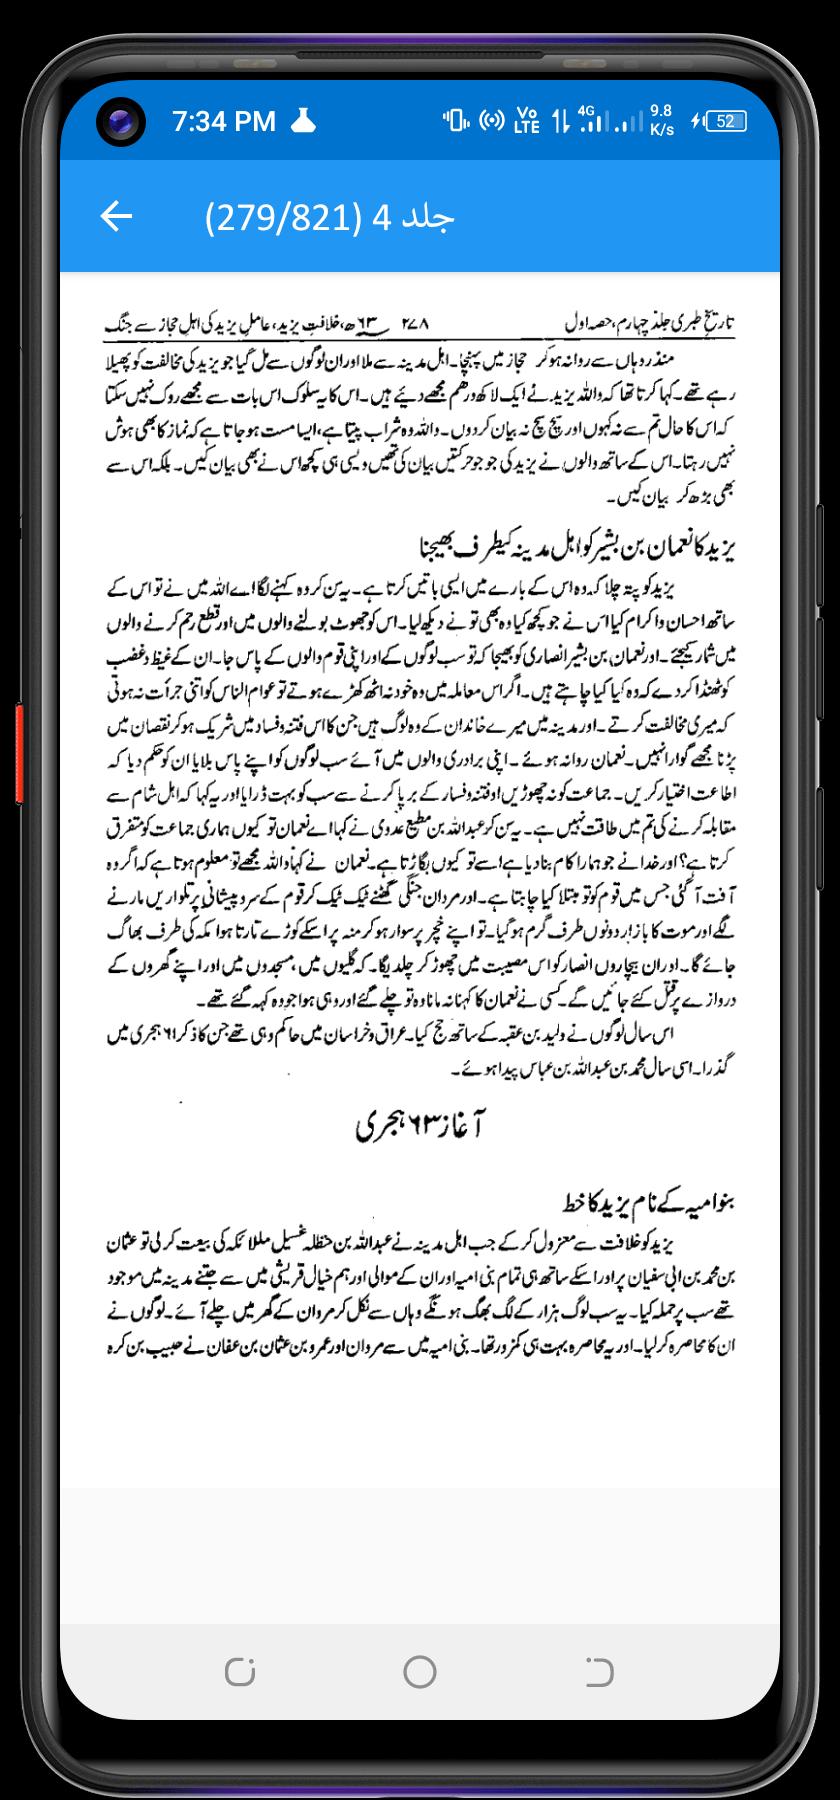 7:34 PM
Vo LTE 4G 9.8 K/s 52
جلد 4 (279/821)
تاریخ طبری جلد چہارم، حصہ اول ۲۷۸ ۶۳ھ، خلافتِ یزید، عاملِ یزید کی اہلِ حجاز سے جنگ
منذر وہاں سے روانہ ہو کر حجاز میں پہنچا۔ اہل مدینہ سے ملا اور ان لوگوں سے مل گیا جو یزید کی مخالفت کو پھیلا
رہے تھے۔ کہا کرتا تھا کہ واللہ یزید نے ایک لاکھ درھم مجھے دیئے ہیں۔ اس کا یہ سلوک اس بات سے مجھے روک نہیں سکتا
کہ اس کا حال تم سے نہ کہوں اور سچ سچ نہ بیان کردوں۔ واللہ وہ شراب پیتا ہے، ایسا مست ہو جاتا ہے کہ نماز کا بھی ہوش
نہیں رہتا۔ اس کے ساتھ والوں نے یزید کی جو جو حرکتیں بیان کی تھیں ویسی ہی کچھ اس نے بھی بیان کیں۔ بلکہ اس سے
بھی بڑھ کر بیان کیں۔
یزید کا نعمان بن بشیر کو اہل مدینہ کیطرف بھیجنا
یزید کو پتہ چلا کہ وہ اس کے بارے میں ایسی باتیں کرتا ہے۔ یہ سن کر وہ کہنے لگا اے اللہ میں نے تو اس کے
ساتھ احسان و اکرام کیا اس نے جو کچھ کیا وہ بھی تو نے دیکھ لیا۔ اس کو جھوٹ بولنے والوں میں اور قطع رحم کرنے والوں
میں شمار کیجئے۔ اور نعمان بن بشیر انصاری کو بھیجا کہ تو سب لوگوں کے اور اپنی قوم والوں کے پاس جا۔ ان کے غیظ و غضب
کو ٹھنڈا کردے کہ وہ کیا کیا چاہتے ہیں۔ اگر اس معاملہ میں وہ خود نہ اٹھ کھڑے ہوتے تو عوام الناس کو اتنی جرأت نہ ہوتی
کہ میری مخالفت کرتے۔ اور مدینہ میں میرے خاندان کے وہ لوگ ہیں جن کا اس فتنہ و فساد میں شریک ہو کر نقصان میں
پڑنا مجھے گوارا نہیں۔ نعمان روانہ ہوئے۔ اپنی برادری والوں میں آئے سب لوگوں کو اپنے پاس بلایا ان کو حکم دیا کہ
اطاعت اختیار کریں۔ جماعت کو نہ چھوڑیں او فتنہ و فسار کے برپا کرنے سے سب کو بہت ڈرایا اور یہ کہا کہ اہل شام سے
مقابلہ کرنے کی تم میں طاقت نہیں ہے۔ یہ سن کر عبداللہ بن مطیع عدوی نے کہا اے نعمان تو کیوں ہماری جماعت کو متفرق
کرتا ہے؟ اور خدا نے جو ہمارا کام بنادیا ہے اسے تو کیوں بگاڑتا ہے۔ نعمان نے کہا واللہ مجھے تو معلوم ہوتا ہے کہ اگر وہ
آفت آگئی جس میں قوم کو تو مبتلا کیا چاہتا ہے۔ اور مردان جنگی گھٹنے ٹیک ٹیک کر قوم کے سر و پیشانی پر تلواریں مارنے
لگے اور موت کا بازار دونوں طرف گرم ہو گیا۔ تو اپنے خچر پر سوار ہو کر منہ پر اسکے کوڑے مارتا ہوا مکہ کی طرف بھاگ
جائے گا۔ اور ان بیچاروں انصار کو اس مصیبت میں چھوڑ کر چلدیگا۔ کہ گلیوں میں، مسجدوں میں اور اپنے گھروں کے
دروازے پر قتل کئے جائیں گے۔ کسی نے نعمان کا کہنا نہ مانا وہ تو چلے گئے اور وہی ہوا جو وہ کہہ گئے تھے۔
اس سال لوگوں نے ولید بن عقبہ کے ساتھ حج کیا۔ عراق و خراسان میں حاکم وہی تھے جن کا ذکر ۶۱ ہجری میں
گذرا۔ اسی سال محمد بن عبداللہ بن عباس پیدا ہوئے۔
آغاز ۶۳ ہجری
بنو امیہ کے نام یزید کا خط
یزید کو خلافت سے معزول کر کے جب اہل مدینہ نے عبداللہ بن حنظلہ غسیل مللائکہ کی بیعت کر لی تو عثمان
بن محمد بن ابی سفیان پر اور اسکے ساتھ ہی تمام بنی امیہ اور ان کے موالی اور ہم خیال قریشی میں سے جتنے مدینہ میں موجود
تھے سب پر حملہ کیا۔ یہ سب لوگ ہزار کے لگ بھگ ہونگے وہاں سے نکل کر مروان کے گھر میں چلے آئے۔ لوگوں نے
ان کا محاصرہ کر لیا۔ اور یہ محاصرہ بہت ہی کمزور تھا۔ بنی امیہ میں سے مروان اور عمرو بن عثمان بن عفان نے حبیب بن کرہ